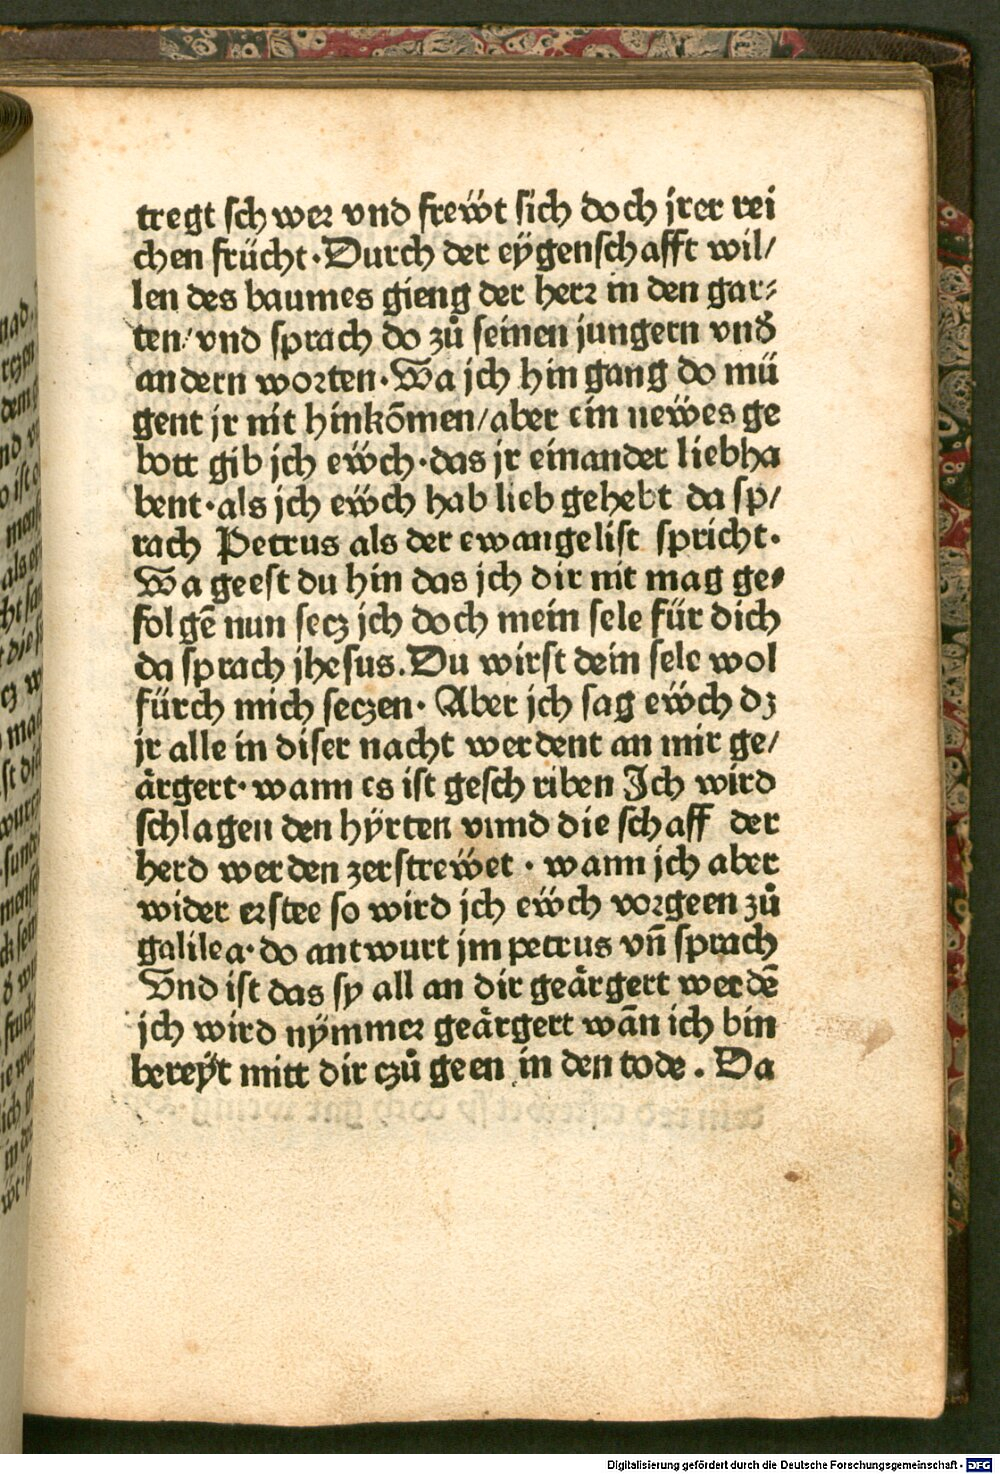 tregt schwer vnd frewͤt sich doch jrer rei
chen frücht·Durch der eÿgenschafft wil/
len des baumes gieng der herr in den gar⸗
ten/vnd sprach do zuͦ seinen jungern vnď
andern worten·Wa jch hin gang do mü
gent jr nit hinkōmen/aber ein neẅes ge
bott gib jch eẅch·das jr einander liebha
bent·als jch eẅch hab lieb gehebt da sp/
rach Petrus als der ewangelist spricht·
Wa geest du hin das jch dir nit mag ge⸗
folgē nun secz jch doch mein sele für dich
da sprach jhesus.Du wirst dein sele wol
fürch mich seczen· Aber jch sag eẅch dz
jr alle in diser nacht werdent an mir ge/
ärgert·wann es ist geschriben Jch wird
schlagen den hÿrten vnnd die schaff der
herd werden zerstreẅet · wann jch aber
wider erstee so wird jch eẅch vorgeen zuͦ
galilea·do antwurt jm petrus vn̄ sprach
Vnd ist das sy all an dir geärgert werdē
jch wird nÿmmer geärgert wān ich bin
bereÿt mitt dir czuͦ geen in den tode. Da
Digitalisierung gefördert durch die Deutsche Forschungsgemeinschaft - DFG